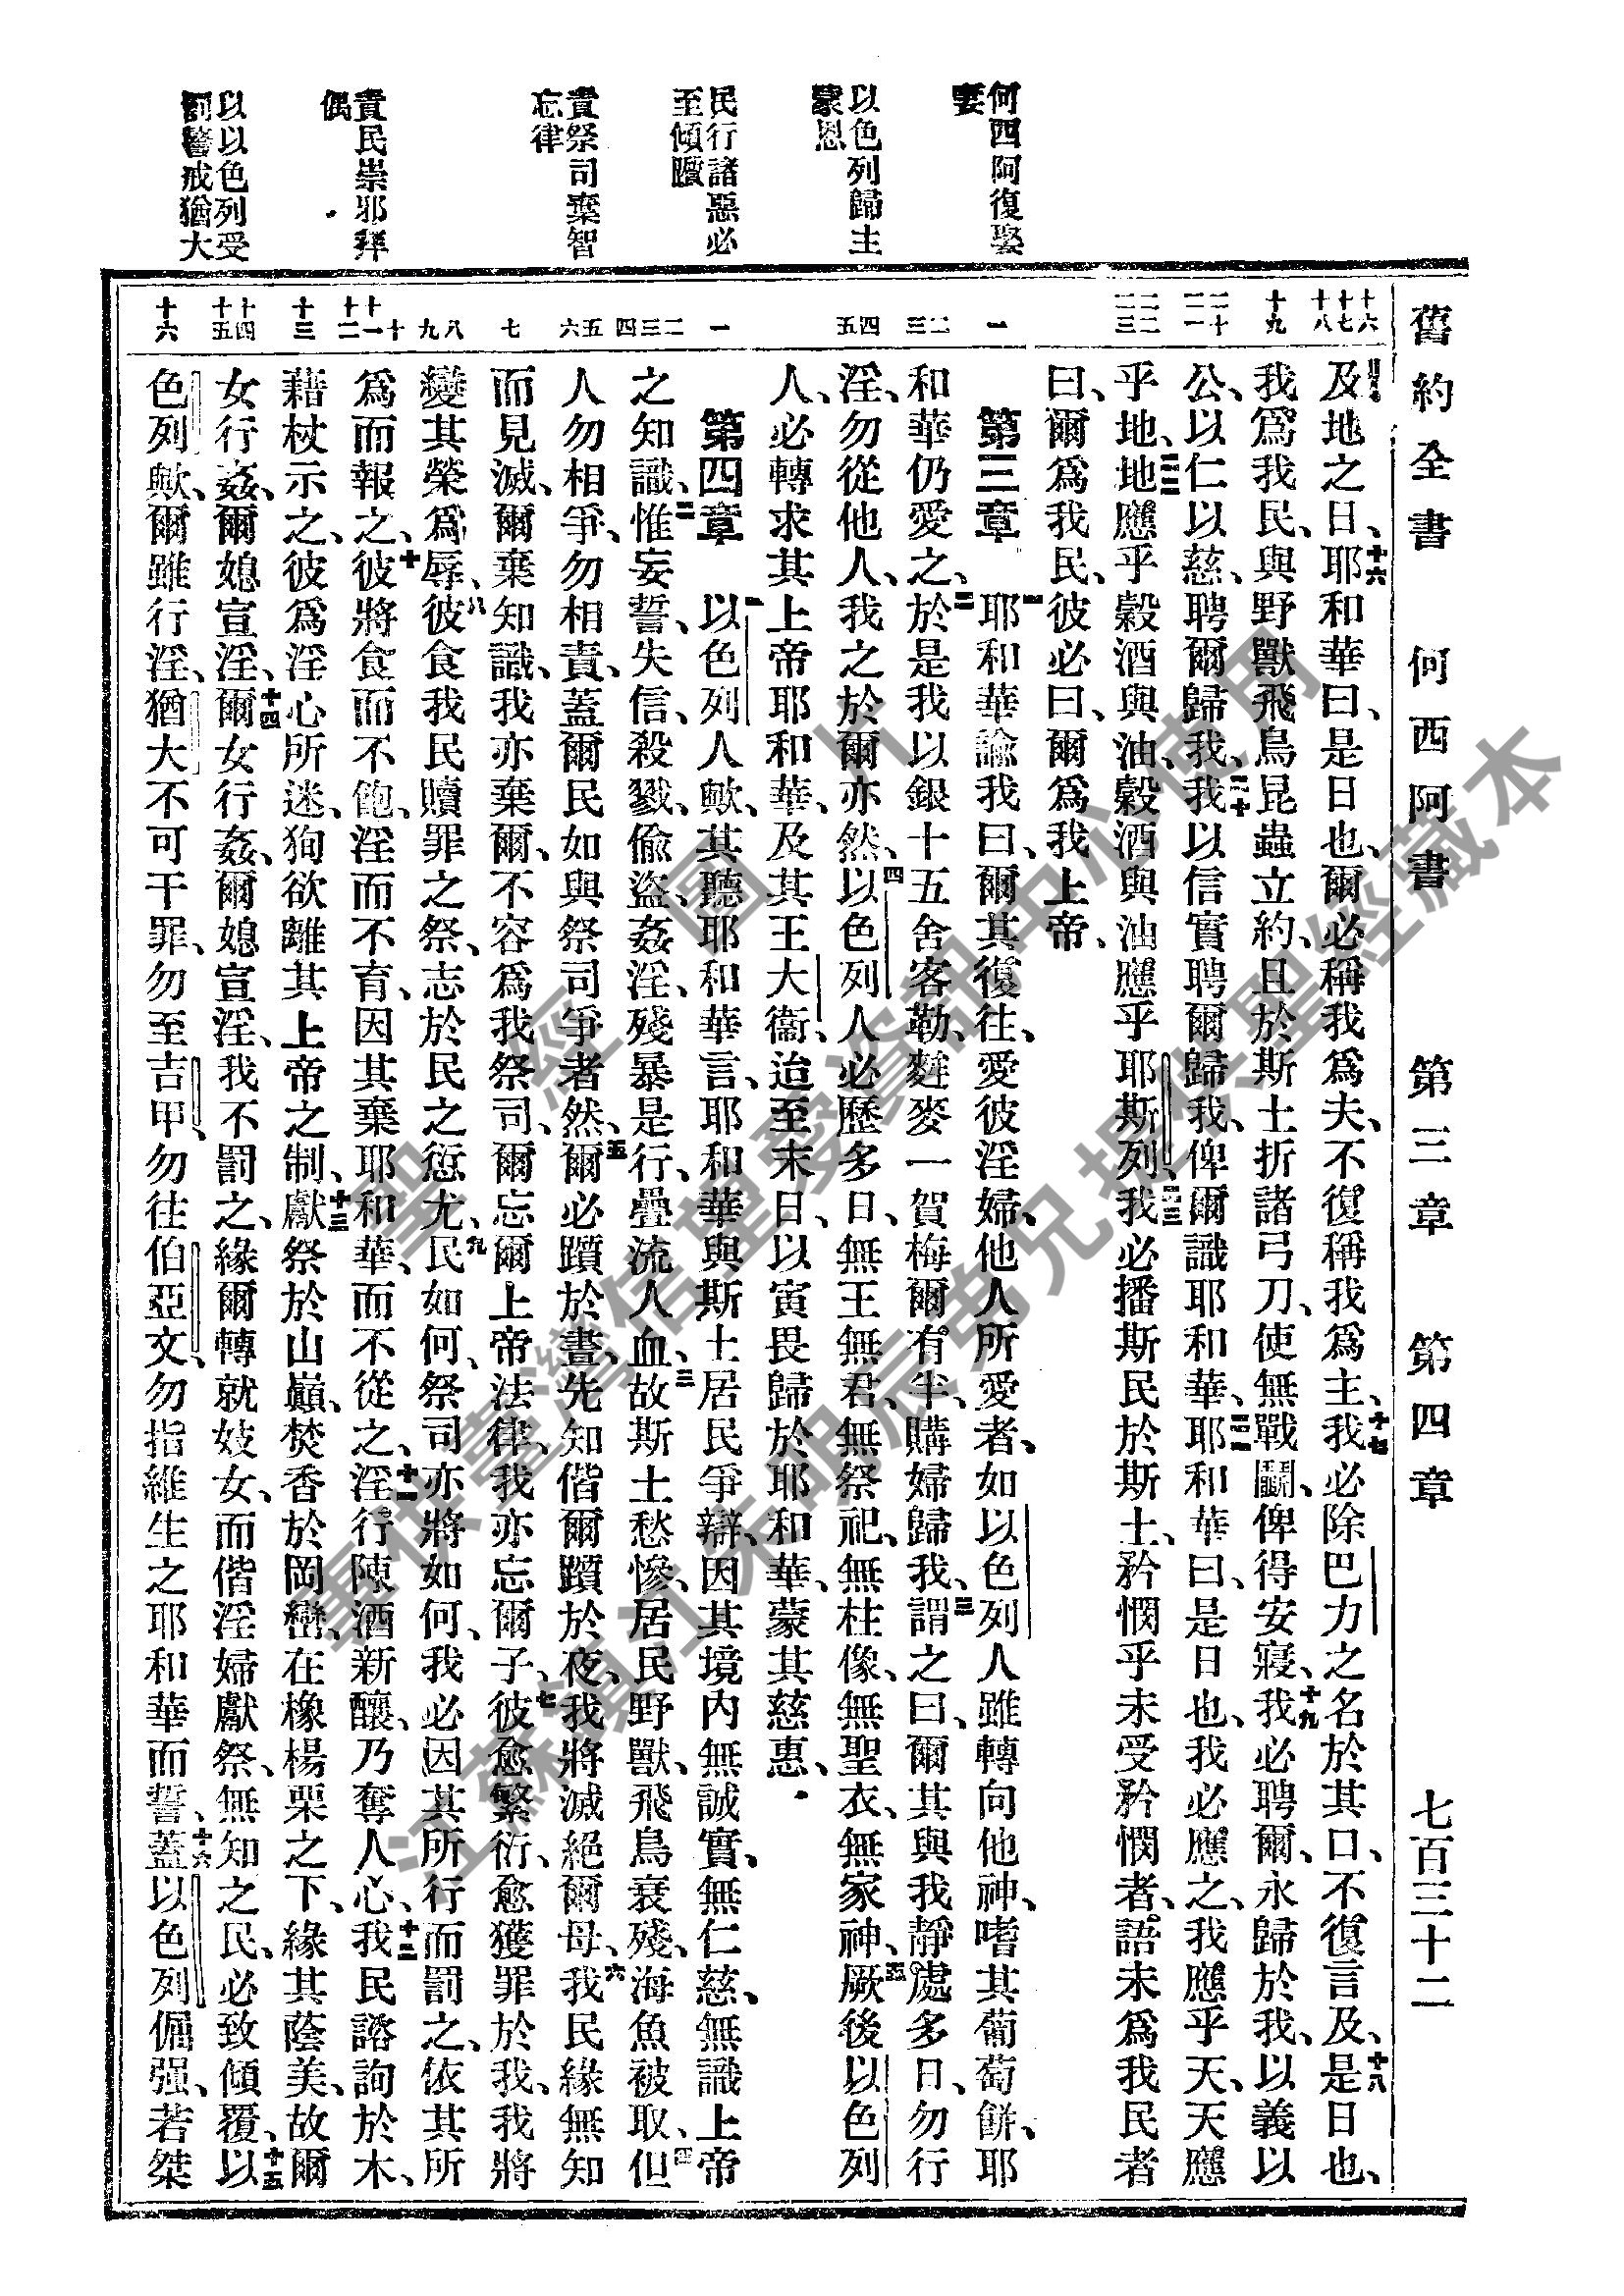 舊約全書 何西阿書 第三章 第四章 七百三十二
何西阿復娶
妻
以色列歸主
蒙恩
民行諸惡必
至傾隕
責祭司棄智
忘律
責民崇邪拜
偶
以以色列受
罰警戒猶大
十六
十七
十八
十九
二十
二一
二二
二三
一
二
三
四
五
一
二
三
四
五
六
七
八
九
十
十一
十二
十三
十四
十五
十六
及地之日、十六耶和華曰、是日也、爾必稱我爲夫、不復稱我爲主、十七我必除巴力之名於其口、不復言及、十八是日也、
我爲我民、與野獸飛鳥昆蟲立約、且於斯土折諸弓刀、使無戰鬭、俾得安寢、十九我必聘爾、永歸於我、以義以
公、以仁以慈、聘爾歸我、二十我以信實聘爾歸我、俾爾識耶和華、二一耶和華曰、是日也、我必應之、我應乎天、天應
乎地、二二地應乎穀酒與油、穀酒與油應乎耶斯列、二三我必播斯民於斯土、矜憫乎未受矜憫者、語未爲我民者
曰、爾爲我民、彼必曰、爾爲我上帝、
第三章 一耶和華諭我曰、爾其復往、愛彼淫婦、他人所愛者、如以色列人雖轉向他神、嗜其葡萄餅、耶
和華仍愛之、二於是我以銀十五舍客勒、麰麥一賀梅爾有半、購婦歸我、三謂之曰、爾其與我靜處多日、勿行
淫、勿從他人、我之於爾亦然、四以色列人必歷多日、無王無君、無祭祀、無柱像、無聖衣、無家神、五厥後以色列
人、必轉求其上帝耶和華、及其王大衞、迨至末日、以寅畏歸於耶和華、蒙其慈惠、
第四章 一以色列人歟、其聽耶和華言、耶和華與斯土居民爭辯、因其境內無誠實、無仁慈、無識上帝
之知識、二惟妄誓、失信、殺戮、偸盜、姦淫、殘暴是行、疊流人血、三故斯土愁慘、居民野獸、飛鳥衰殘、海魚被取、四但
人勿相爭、勿相責、蓋爾民如與祭司爭者然、五爾必躓於晝、先知偕爾躓於夜、我將滅絕爾母、六我民緣無知
而見滅、爾棄知識、我亦棄爾、不容爲我祭司、爾忘爾上帝法律、我亦忘爾子、七彼愈繁衍、愈獲罪於我、我將
變其榮爲辱、八彼食我民贖罪之祭、志於民之愆尤、九民如何、祭司亦將如何、我必因其所行而罰之、依其所
爲而報之、十彼將食而不飽、淫而不育、因其棄耶和華、而不從之、十一淫行陳酒新釀、乃奪人心、十二我民諮詢於木、
藉杖示之、彼爲淫心所迷、狥欲離其上帝之制、十三獻祭於山巓、焚香於岡巒、在橡楊栗之下、緣其蔭美、故爾
女行姦、爾媳宣淫、十四爾女行姦、爾媳宣淫、我不罰之、緣爾轉就妓女、而偕淫婦獻祭、無知之民、必致傾覆、十五以
色列歟、爾雖行淫、猶大不可干罪、勿至吉甲、勿往伯亞文、勿指維生之耶和華而誓、十六蓋以色列倔强、若桀
聖經圖片
專供臺灣信望愛資訊中心使用
江蘇鎮江朱明辰弟兄提供聖經藏本